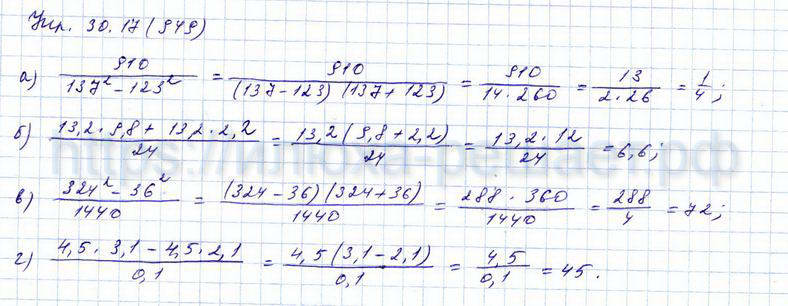 Упр. 30.17 (949)
а) 910/(137² - 123²) = 910/((137-123)(137+123)) = 910/(14·260) = 13/(2·26) = 1/4;
б) (13,2·9,8 + 13,2·2,2)/24 = 13,2(9,8+2,2)/24 = 13,2·12/24 = 6,6;
в) (324² - 36²)/1440 = (324-36)(324+36)/1440 = 288·360/1440 = 288/4 = 72;
г) (4,5·3,1 - 4,5·2,1)/0,1 = 4,5(3,1-2,1)/0,1 = 4,5/0,1 = 45.